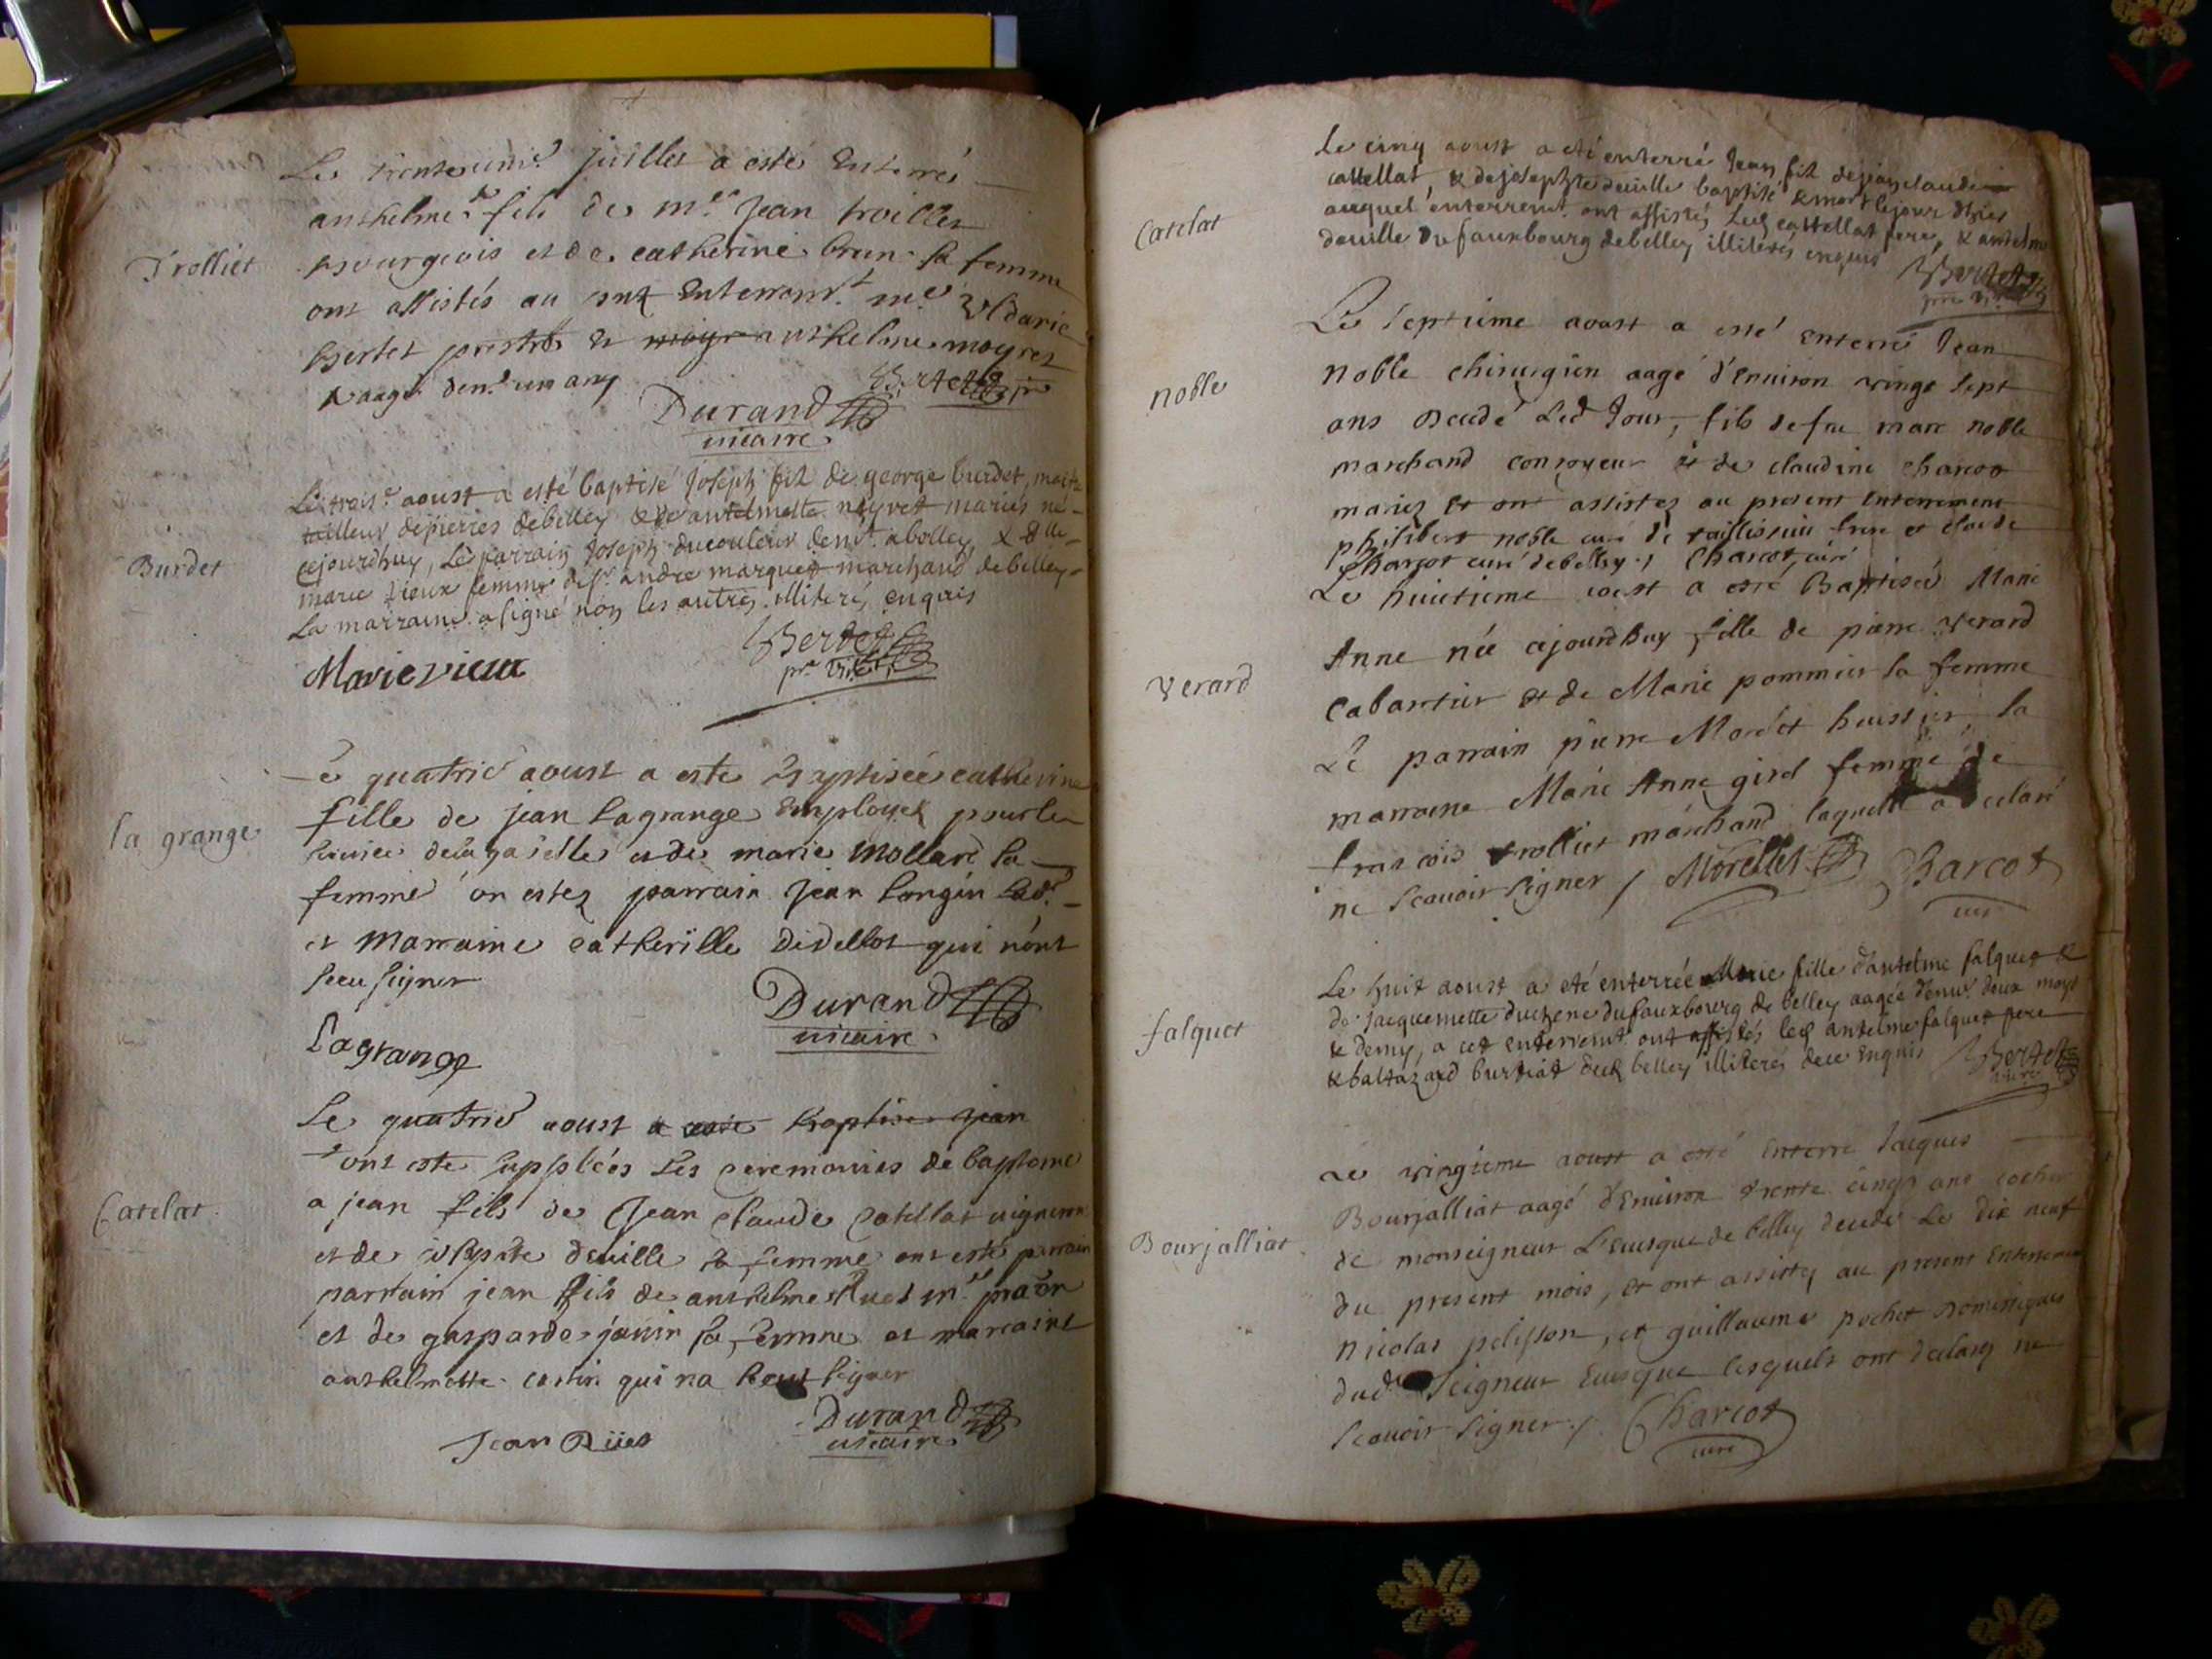 Trolliet
Le trente unie juillet a esté Enterré
anthelme fils de mre Jean troillet
bourgeois et de catherine brun sa femme
ont assistés au snt Enterromt mre Uldaric
bertet prestre et anthelme moyret
aagé denv un any
Bertet
Durand
vicaire
Burdet
Le troise aoust a esté baptisé Joseph fil de george burdet, maitre
tailleur depierres debelley & de antelmette neyret mariés né
cejourdhuy, Le parrain Joseph ducouleur a belley & dlle
marie vieux femme de sr andre marquet marchand debelley
La marraine a signé non les autres illiteré, enquis
Marie vieux
Bertet
pre vic
la grange
Le quatrie aoust a este Baptisée catherine
fille de jean Lagrange Employez pour les
de la et de marie mollard sa
femme on estez parrain Jean Longin
et marraine catherille Didellot qui n'ont
sceu signer
Durand
vicaire
Lagrange
Catelat
Le quatrie aoust a esté baptise jean
ont este supplées les ceremonies de baptome
a jean fils de Jean claude Catellat vigneron
et de deville sa femme ont esté parrain
parrain jean fils de anthelme Ruet mre
et de gasparde janin sa femme et maraine
anthelmette qui na sceut signer
Jean Rüet
Durand
vicaire
Catelat
le cinq aoust a eté enterré Jean fil dejeanclaude
cattellat, & dejosephte deville baptisé & mort lejour d'hier
auquel enterremt ont assistés Led cattellat pere, & antelme
deville du fauxbourg debelley illiterés enquis
Bertet
pre vic
noble
Le septieme aoust a esté enterré Jean
noble chirurgien aagé d'environ vingt sept
ans decedé Led Jour, fils de feu marc noble
marchand conroyeur et de claudine charcot
mariez Et ont assistez au present enterrement
philibert noble curé de taillissieu frere et claude
Charcot curé debelley / Charcot, curé
Verard
Le huictieme aoust a esté Baptiseé Marie
Anne née cejourdhuy fille de pierre verard
Cabartier et de Marie pommier sa femme
Le parrain pierre Morelet huissier, la
marraine Marie Anne girel femme de
francois trolliet marchand laquelle a declaré
ne scavoir signer / Morellet Charcot
curé
falquet
Le huit aoust a eté enterrée Marie fille d'antelme falquet &
de jacquemette duchene du fauxbourg de belley aagée d'envn deux moys
& demy, a cet enterremt ont assistés led antelme falquet pere
& baltazard burtiat dud belley illiterés dece enquis Bertet
vicre
Bourjalliat
Le vingtieme aoust a esté Enterré Jacques
Bourjalliat aagé d'environ trente cinq ans cocher
de monseigneur L'Evesque de belley decedé Le dix neuf
du present mois, et ont assistez au present Enterrement
nicolas pelisson, et guillaume pochet domestiques
dudt Seigneur Evesque lesquels ont declarez ne
scavoir signer / Charcot
curé